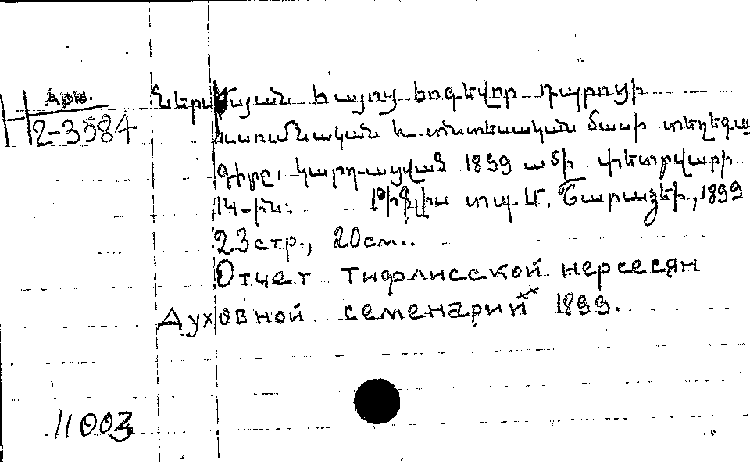 Арм.
H 2-3584
Ներսիսյան հայոց հոգևոր դպրոցի
ուսումնական և տնտեսական մասի տեղեկա
գիրը, կարդացված 1899 ամի փետրվարի
14-ին: Թիֆլիս տպ. Մ. Շարաձեի, 1899
23 стр., 20см..
Отчет Тифлисской нерсесян
Духовной семенарий 1899.
11003